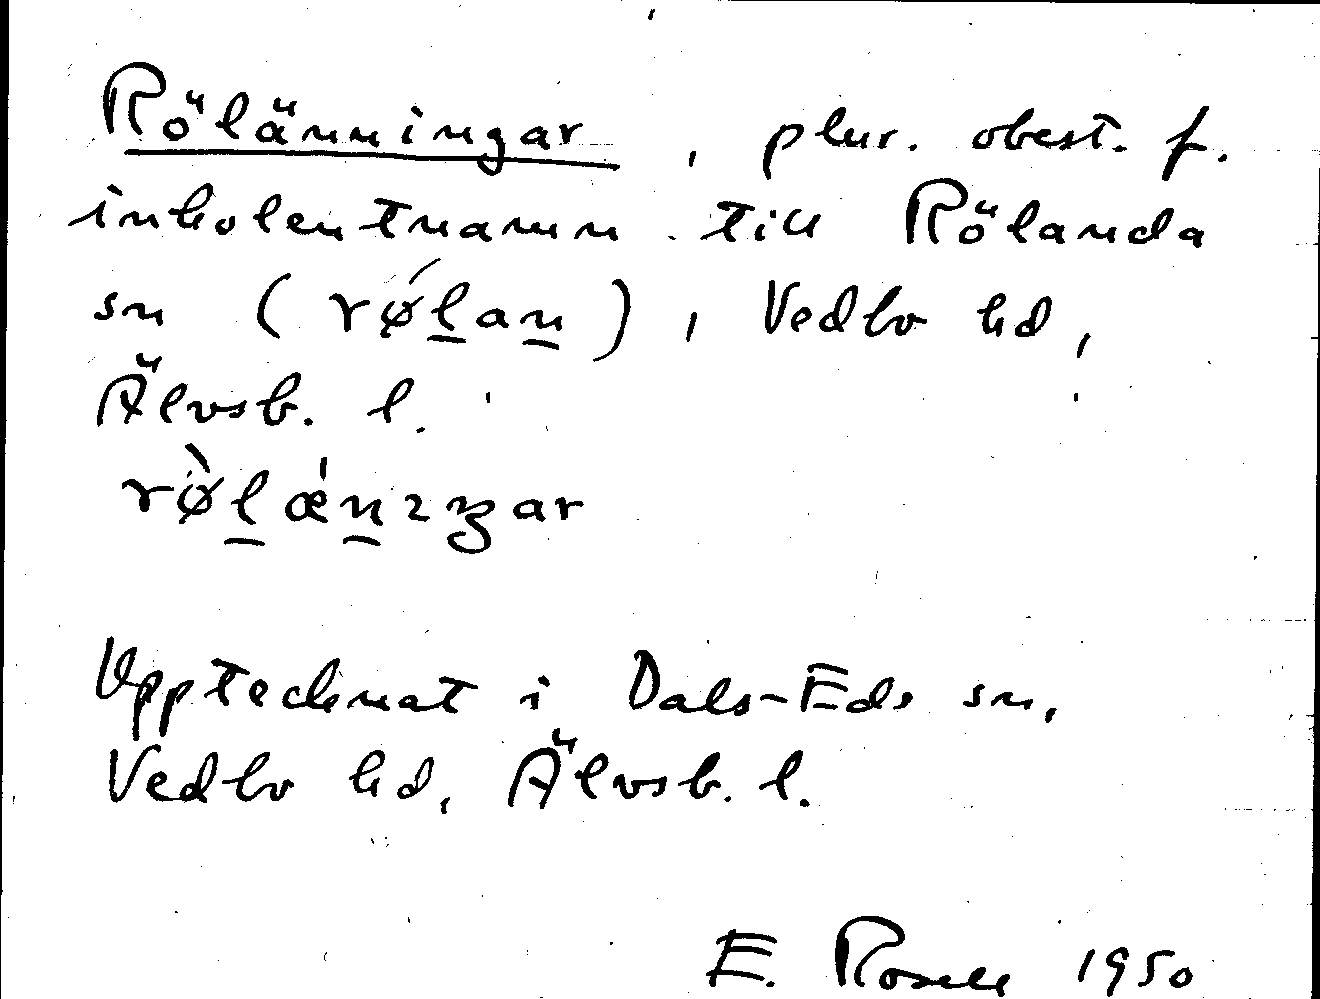 Rölänningar, plur. obest. f.
inbolentnamn till Rölanda
sn (rǿl̲an̲), Vedbo hd,
Älvsb. l.
rø̀l̲æ̍n̲ıŋar
Upptecknat i Dals-Eds sn,
Vedbo hd, Älvsb. l.
E. Rosell 1950